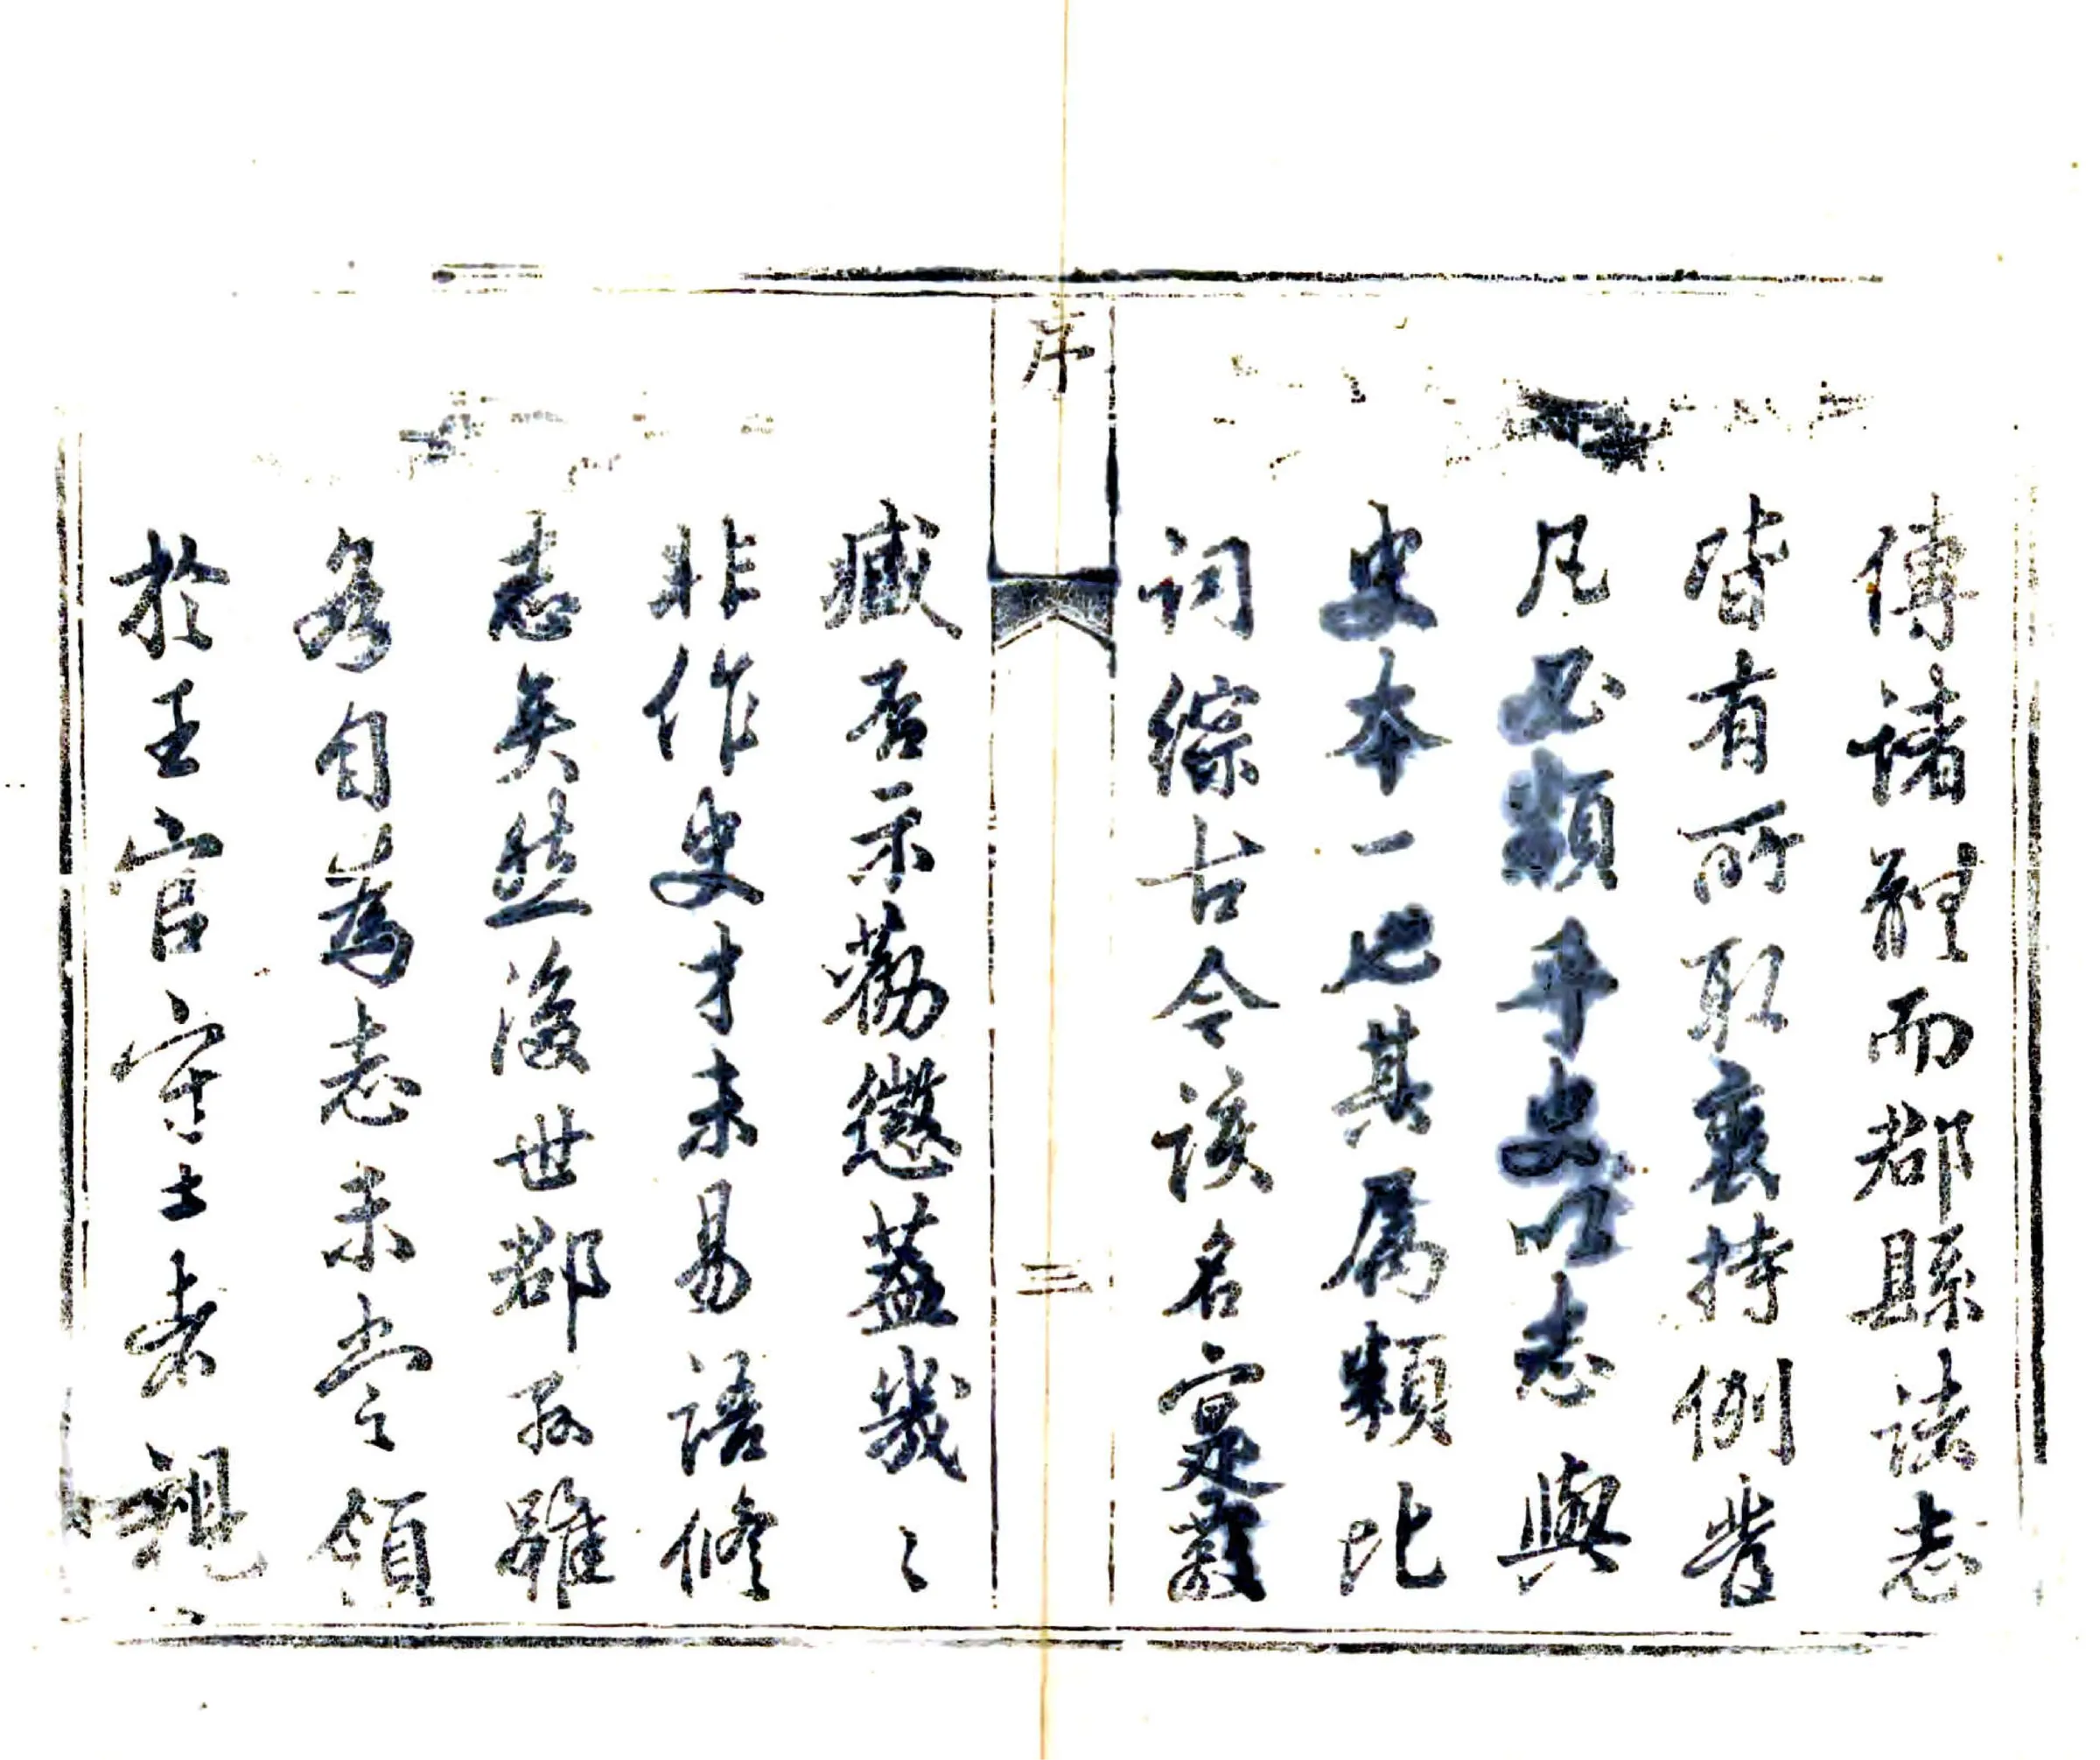 傳諸體而郡縣諸志
皆有所取裹持例發
凡必類乎史以志與
史本一也其屬類比
詞綜古今該名寔覈
序
三
臧否示勸懲蓋幾〻
非作史才未易語修
志矣然後世郡縣雖
各自為志未嘗領
於王官守土者視〻